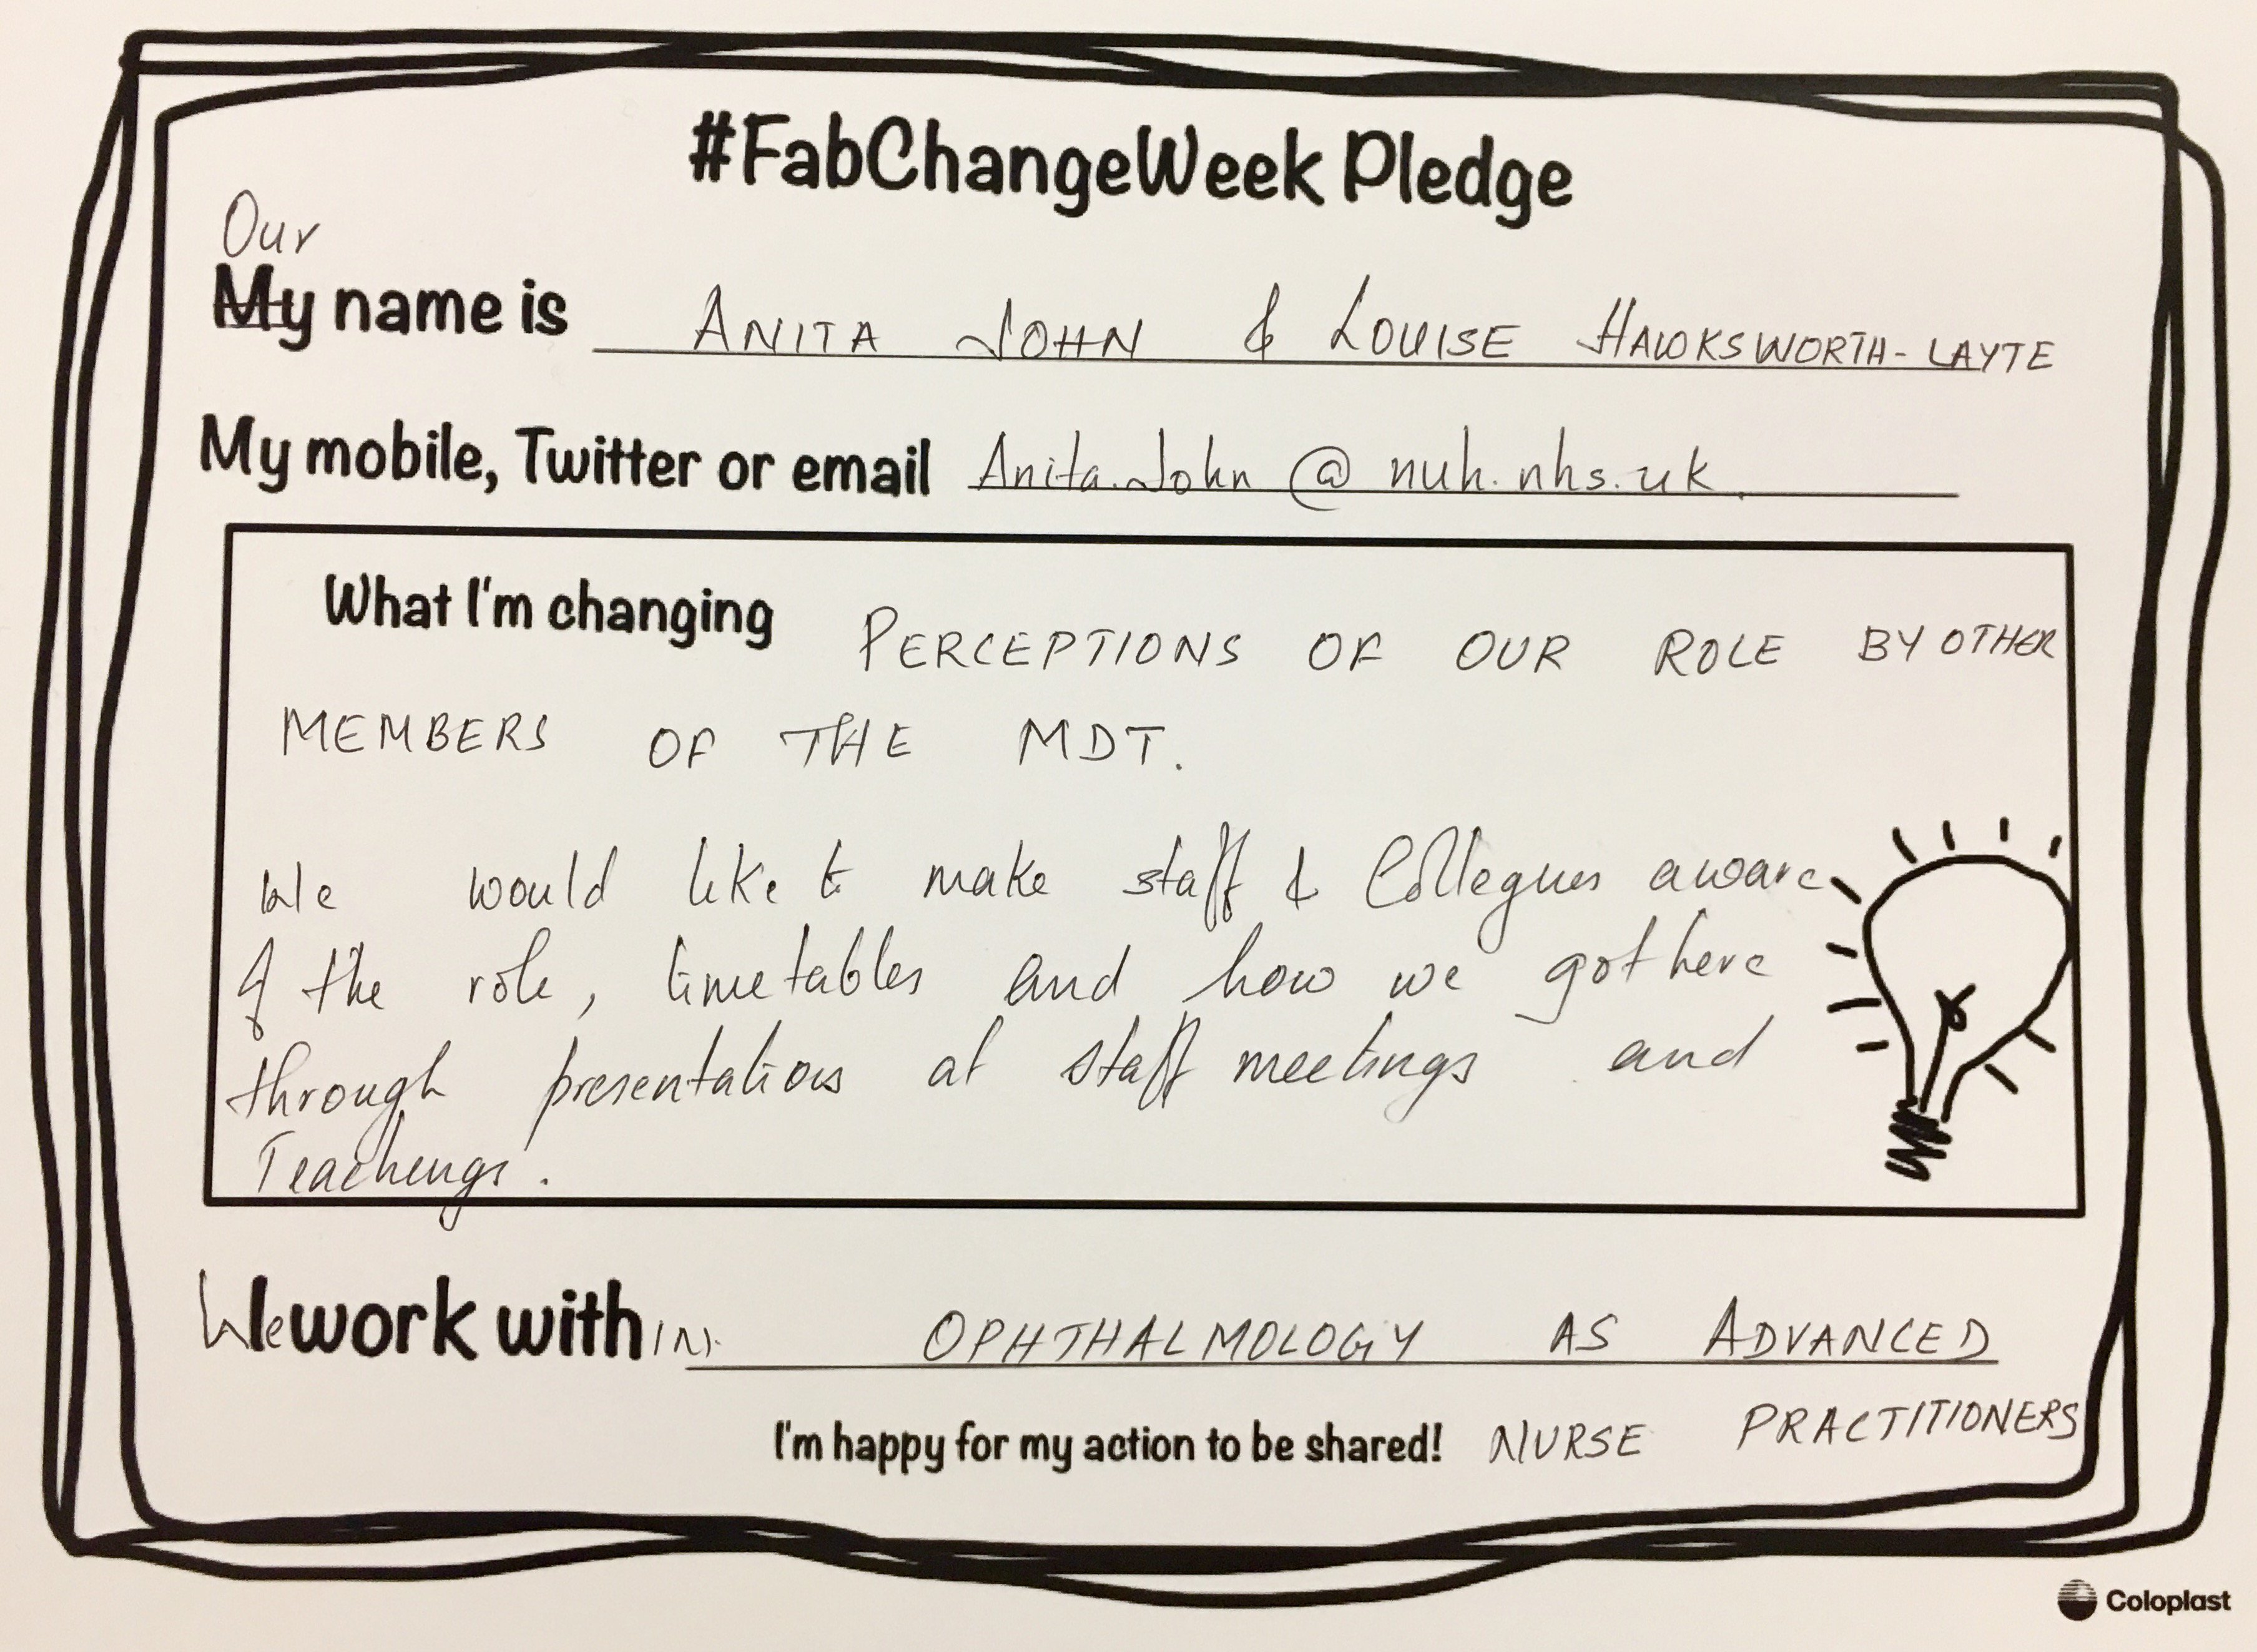 #FabChangeWeek Pledge
Our
My name is ANITA JOHN & LOUISE HAWKSWORTH-LAYTE
My mobile, Twitter or email Anita.John@nuh.nhs.uk.
What I'm changing PERCEPTIONS OF OUR ROLE BY OTHER
MEMBERS OF THE MDT.
We would like to make staff & Collegues aware
of the role, timetables and how we got here
through presentations at staff meetings and
Teachings.
We I work with IN. OPHTHALMOLOGY AS ADVANCED
I'm happy for my action to be shared! NURSE PRACTITIONERS
Coloplast